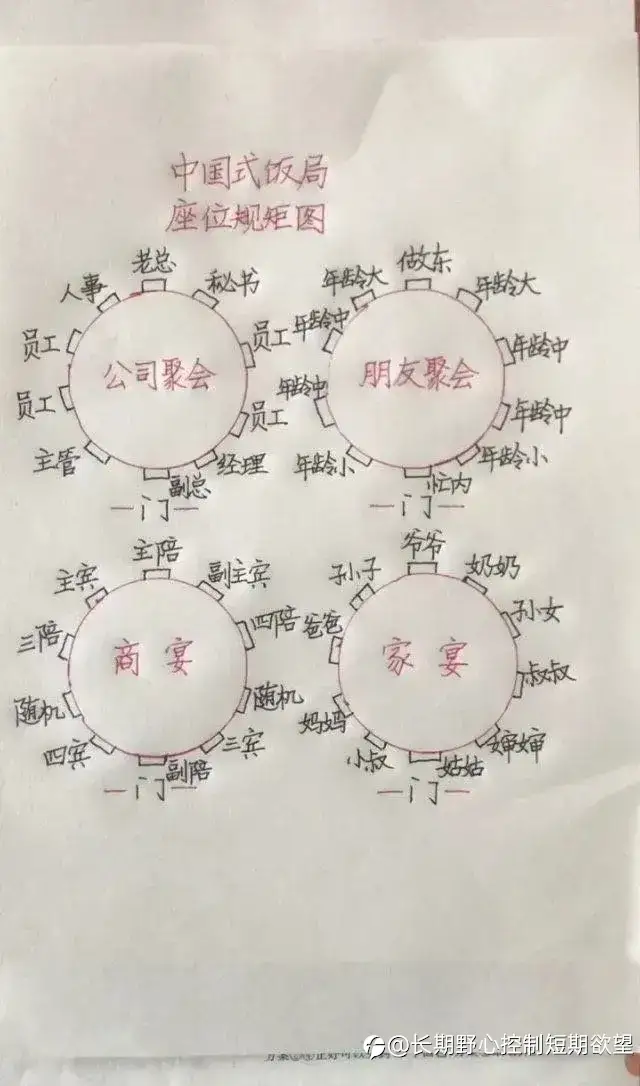 中国式饭局
座位规矩图
老总
人事
秘书
员工
员工
公司聚会
员工
员工
主管
经理
副总
门
做东
年龄大
年龄大
年龄中
年龄中
朋友聚会
年龄中
年龄中
年龄小
年龄小
忙内
门
主陪
主宾
副主宾
三陪
四陪
商宴
随机
随机
四宾
三宾
副陪
门
爷爷
孙子
奶奶
爸爸
孙女
家宴
叔叔
妈妈
小叔
婶婶
姑姑
门
@长期野心控制短期欲望